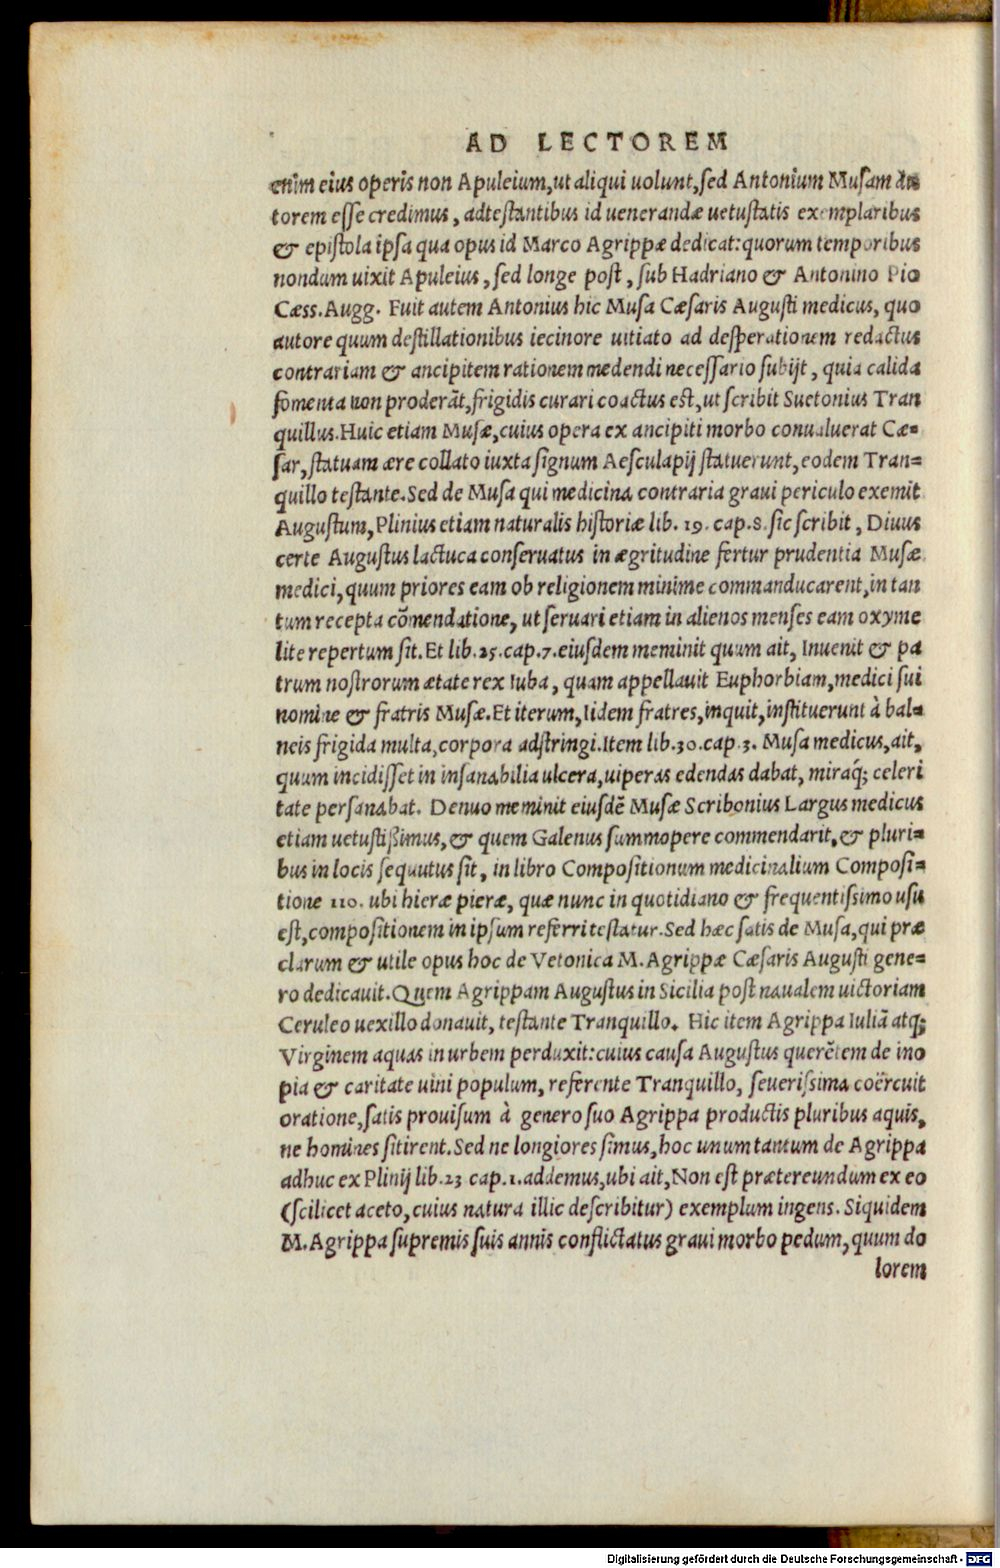 AD LECTOREM
enim eius operis non Apuleium, ut aliqui uolunt, sed Antonium Musam au-
torem esse credimus, adtestantibus id uenerandæ uetustatis exemplaribus
& epistola ipsa qua opus id Marco Agrippæ dedicat: quorum temporibus
nondum uixit Apuleius, sed longe post, sub Hadriano & Antonino Pio
Cæss. Augg. Fuit autem Antonius hic Musa Cæsaris Augusti medicus, quo
autore quum destillationibus iecinore uitiato ad desperationem redactus
contrariam & ancipitem rationem medendi necessario subijt, quia calida
fomenta non proderāt, frigidis curari coactus est, ut scribit Suetonius Tran
quillus. Huic etiam Musæ, cuius opera ex ancipiti morbo conualuerat Cæ-
sar, statuam ære collato iuxta signum Aesculapij statuerunt, eodem Tran-
quillo testante. Sed de Musa qui medicina contraria graui periculo exemit
Augustum, Plinius etiam naturalis historiæ lib. 19. cap. 8. sic scribit, Diuus
certe Augustus lactuca conseruatus in ægritudine fertur prudentia Musæ
medici, quum priores eam ob religionem minime commanducarent, in tan
tum recepta cōmendatione, ut seruari etiam in alienos menses eam oxyme
lite repertum sit. Et lib. 25. cap. 7. eiusdem meminit quum ait, Inuenit & pa
trum nostrorum ætate rex Iuba, quam appellauit Euphorbiam, medici sui
nomine & fratris Musæ. Et iterum, Iidem fratres, inquit, instituerunt à bal-
neis frigida multa, corpora adstringi. Item lib. 30. cap. 3. Musa medicus, ait,
quum incidisset in insanabilia ulcera, uiperas edendas dabat, miraq́; celeri
tate persanabat. Denuo meminit eiusdē Musæ Scribonius Largus medicus
etiam uetustißimus, & quem Galenus summopere commendarit, & pluri-
bus in locis sequutus sit, in libro Compositionum medicinalium Composi-
tione 110. ubi hieræ pieræ, quæ nunc in quotidiano & frequentissimo usu
est, compositionem in ipsum referri testatur. Sed hæc satis de Musa, qui præ
clarum & utile opus hoc de Vetonica M. Agrippæ Cæsaris Augusti gene-
ro dedicauit. Quem Agrippam Augustus in Sicilia post naualem uictoriam
Ceruleo uexillo donauit, testante Tranquillo. Hic item Agrippa Iuliā atq;
Virginem aquas in urbem perduxit: cuius causa Augustus querētem de ino
pia & caritate uini populum, referente Tranquillo, seuerissima coërcuit
oratione, satis prouisum à genero suo Agrippa productis pluribus aquis,
ne homines sitirent. Sed ne longiores simus, hoc unum tantum de Agrippa
adhuc ex Plinij lib. 23 cap. 1. addemus, ubi ait, Non est prætereundum ex eo
(scilicet aceto, cuius natura illic describitur) exemplum ingens. Siquidem
M. Agrippa supremis suis annis conflictatus graui morbo pedum, quum do
lorem
Digitalisierung gefördert durch die Deutsche Forschungsgemeinschaft - DFG